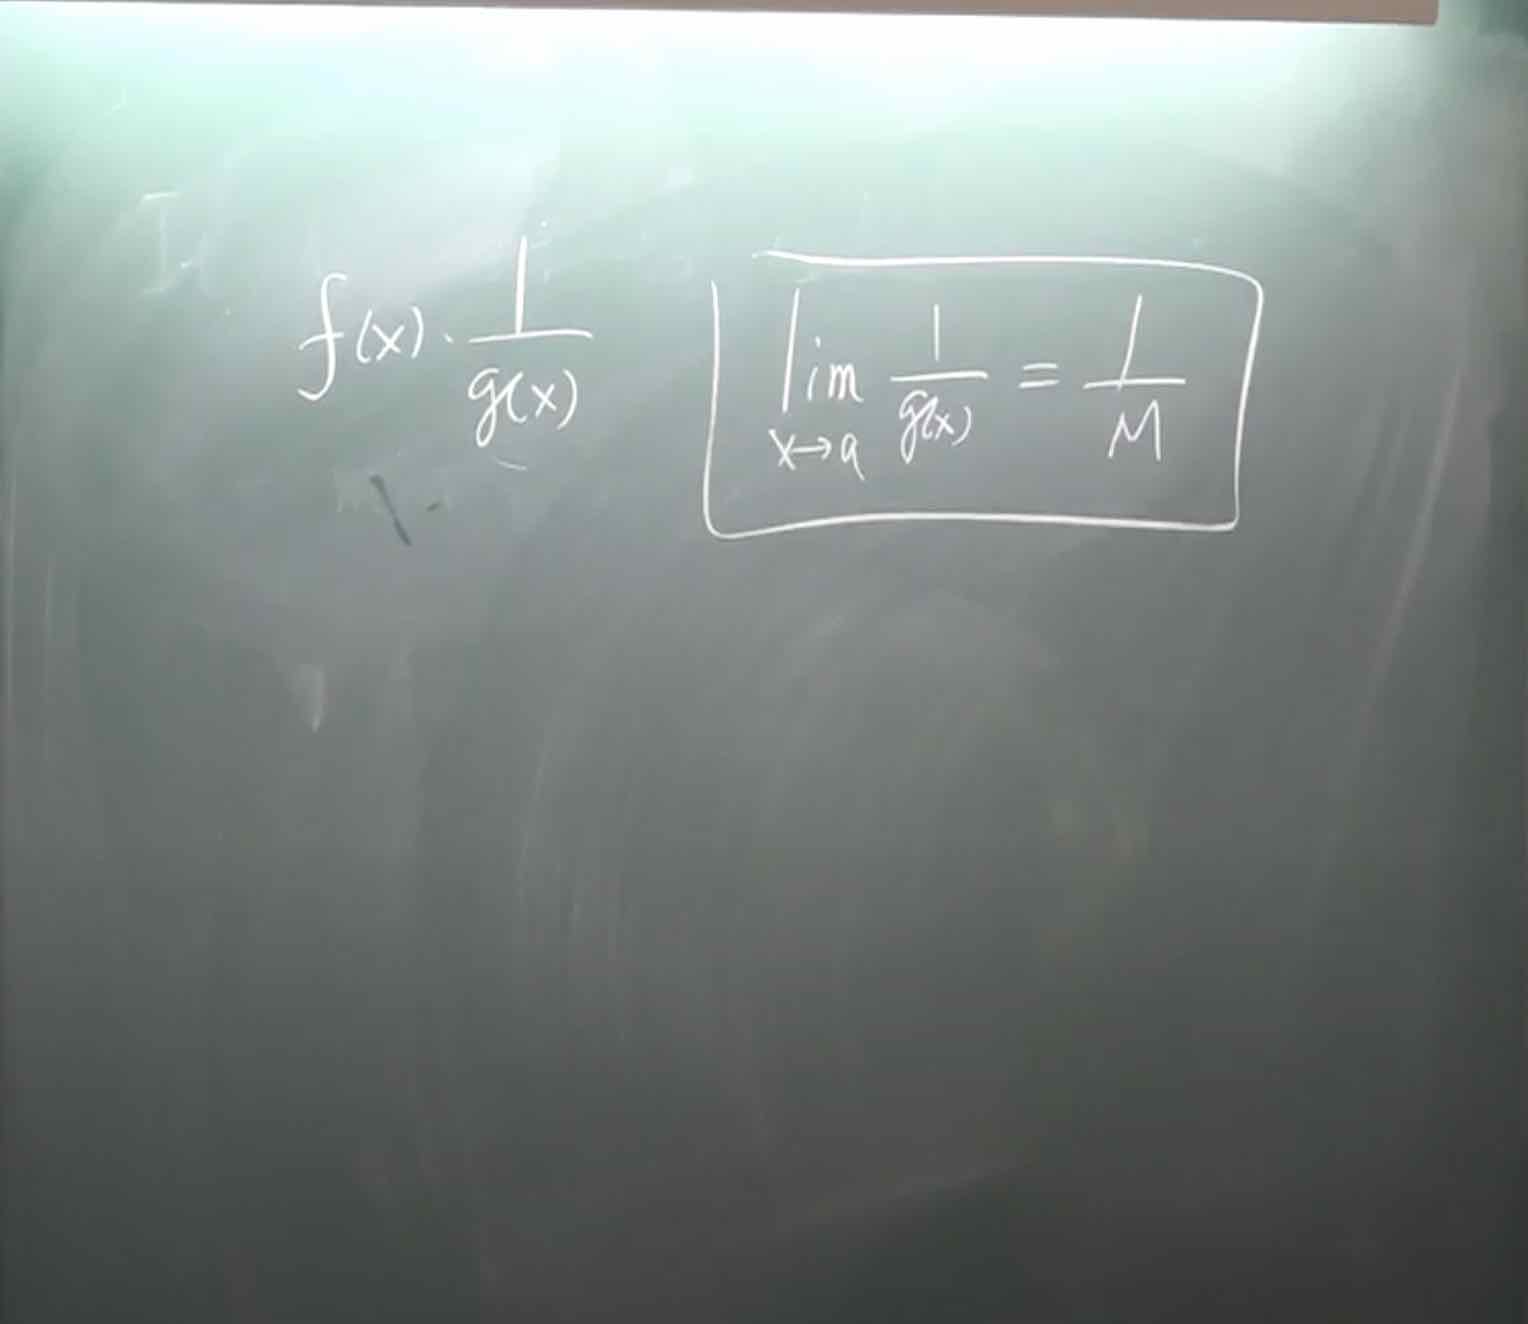 f(x) · 1/g(x)
lim x→a 1/g(x) = 1/M